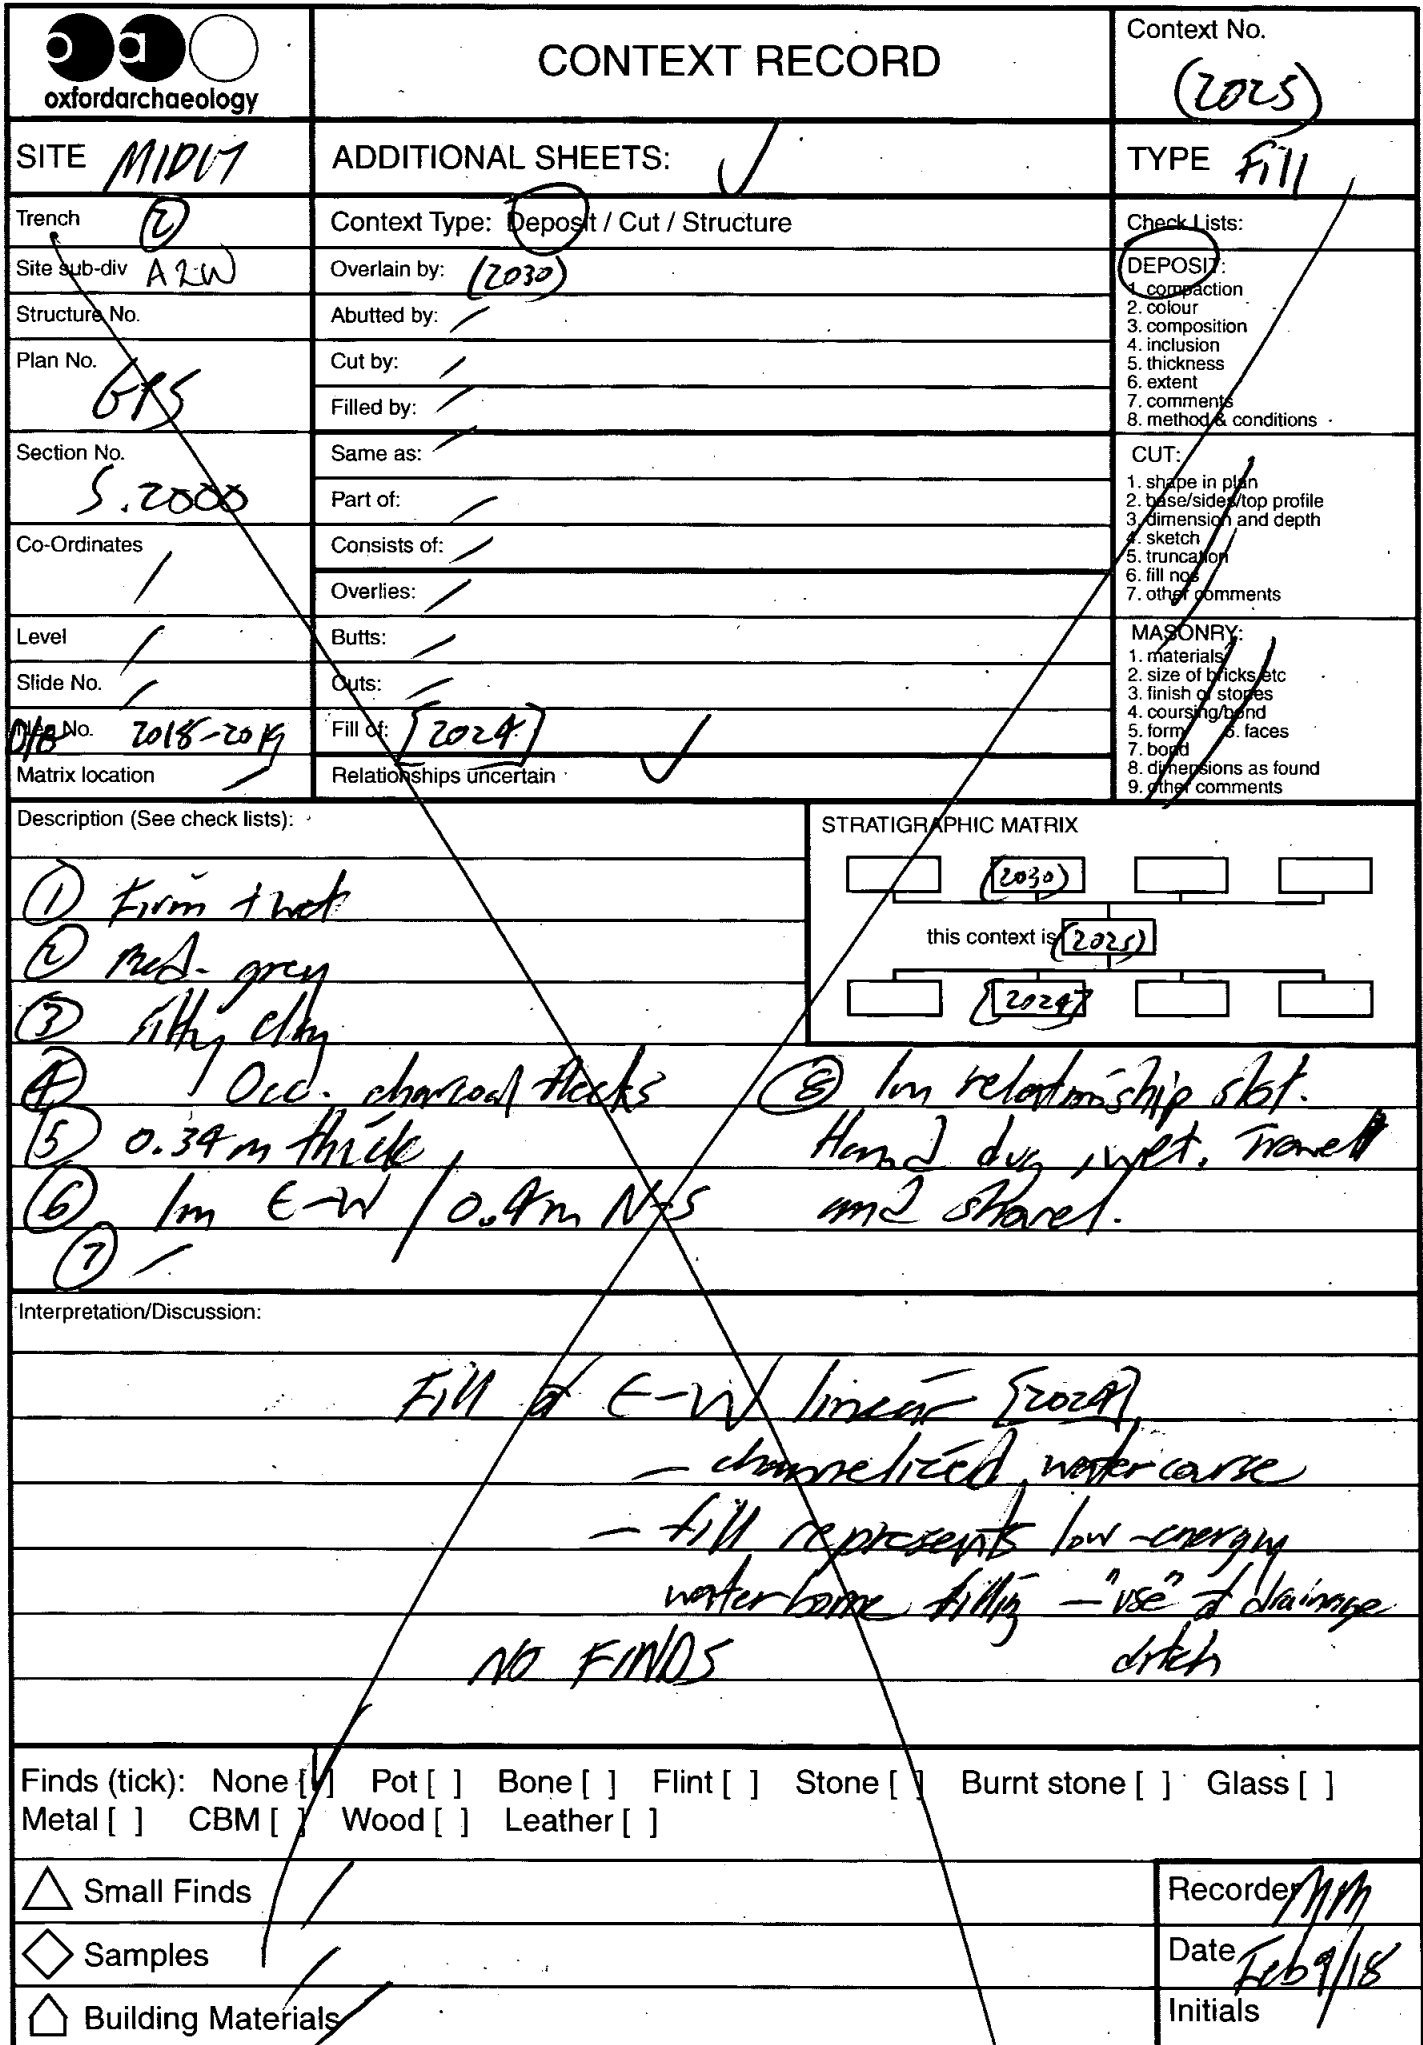 oao
oxfordarchaeology
CONTEXT RECORD
Context No.
(2025)
SITE
ADDITIONAL SHEETS:
TYPE Fill
Trench 2
Site sub-div A2W
Structure No.
Plan No.
GPS
Section No.
S.2000
Co-Ordinates
Level
Slide No.
Neg No. 2018-2019
Matrix location
Context Type: Deposit / Cut / Structure
Overlain by: (2030)
Abutted by:
Cut by:
Filled by:
Same as:
Part of:
Consists of:
Overlies:
Butts:
Cuts:
Fill of: [2024]
Relationships uncertain
Check Lists:
DEPOSIT:
1. compaction
2. colour
3. composition
4. inclusion
5. thickness
6. extent
7. comments
8. method & conditions
CUT:
1. shape in plan
2. base/sides/top profile
3. dimension and depth
4. sketch
5. truncation
6. fill nos
7. other comments
MASONRY:
1. materials
2. size of bricks etc
3. finish of stones
4. coursing/bond
5. form 6. faces
7. bond
8. dimensions as found
9. other comments
Description (See check lists):
1 Firm + wet
2 Med. grey
3 silty clay
4 Occ. charcoal flecks
5 0.34m thick
6 1m E-W / 0.4m N-S
7 /
8 1m relationship slot.
Hand dug, wet. Trowel
and shovel.
STRATIGRAPHIC MATRIX
(2030)
this context is (2025)
[2024]
Interpretation/Discussion:
Fill of E-W linear [2024]
- channelized watercourse
- fill represents low-energy
waterborne filling - "use" of drainage
ditch
NO FINDS
Finds (tick): None [ ] Pot [ ] Bone [ ] Flint [ ] Stone [ ] Burnt stone [ ] Glass [ ]
Metal [ ] CBM [ ] Wood [ ] Leather [ ]
Small Finds
Samples
Building Materials
Recorder MM
Date Feb 9/18
Initials